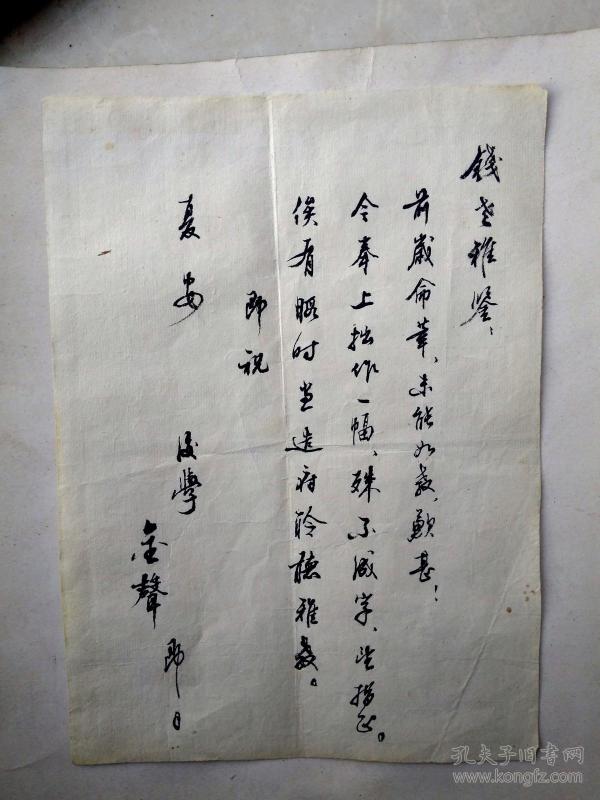 錢老雅鑒：
前歲命葦、未能如教、歉甚！
今奉上拙作一幅、殊不成字、望指正。
俟有暇时当造府聆聽雅教。
即祝
夏安
後學
金聲 即日
孔夫子旧书网
www.kongfz.com